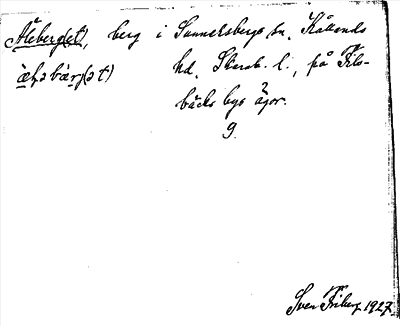 Åleberg(et), berg i Sunnersbergs sn. Kållands
hd. Skarab. l., på Fils-
bäcks bys ägor.
9.
Sven Friberg 1927.